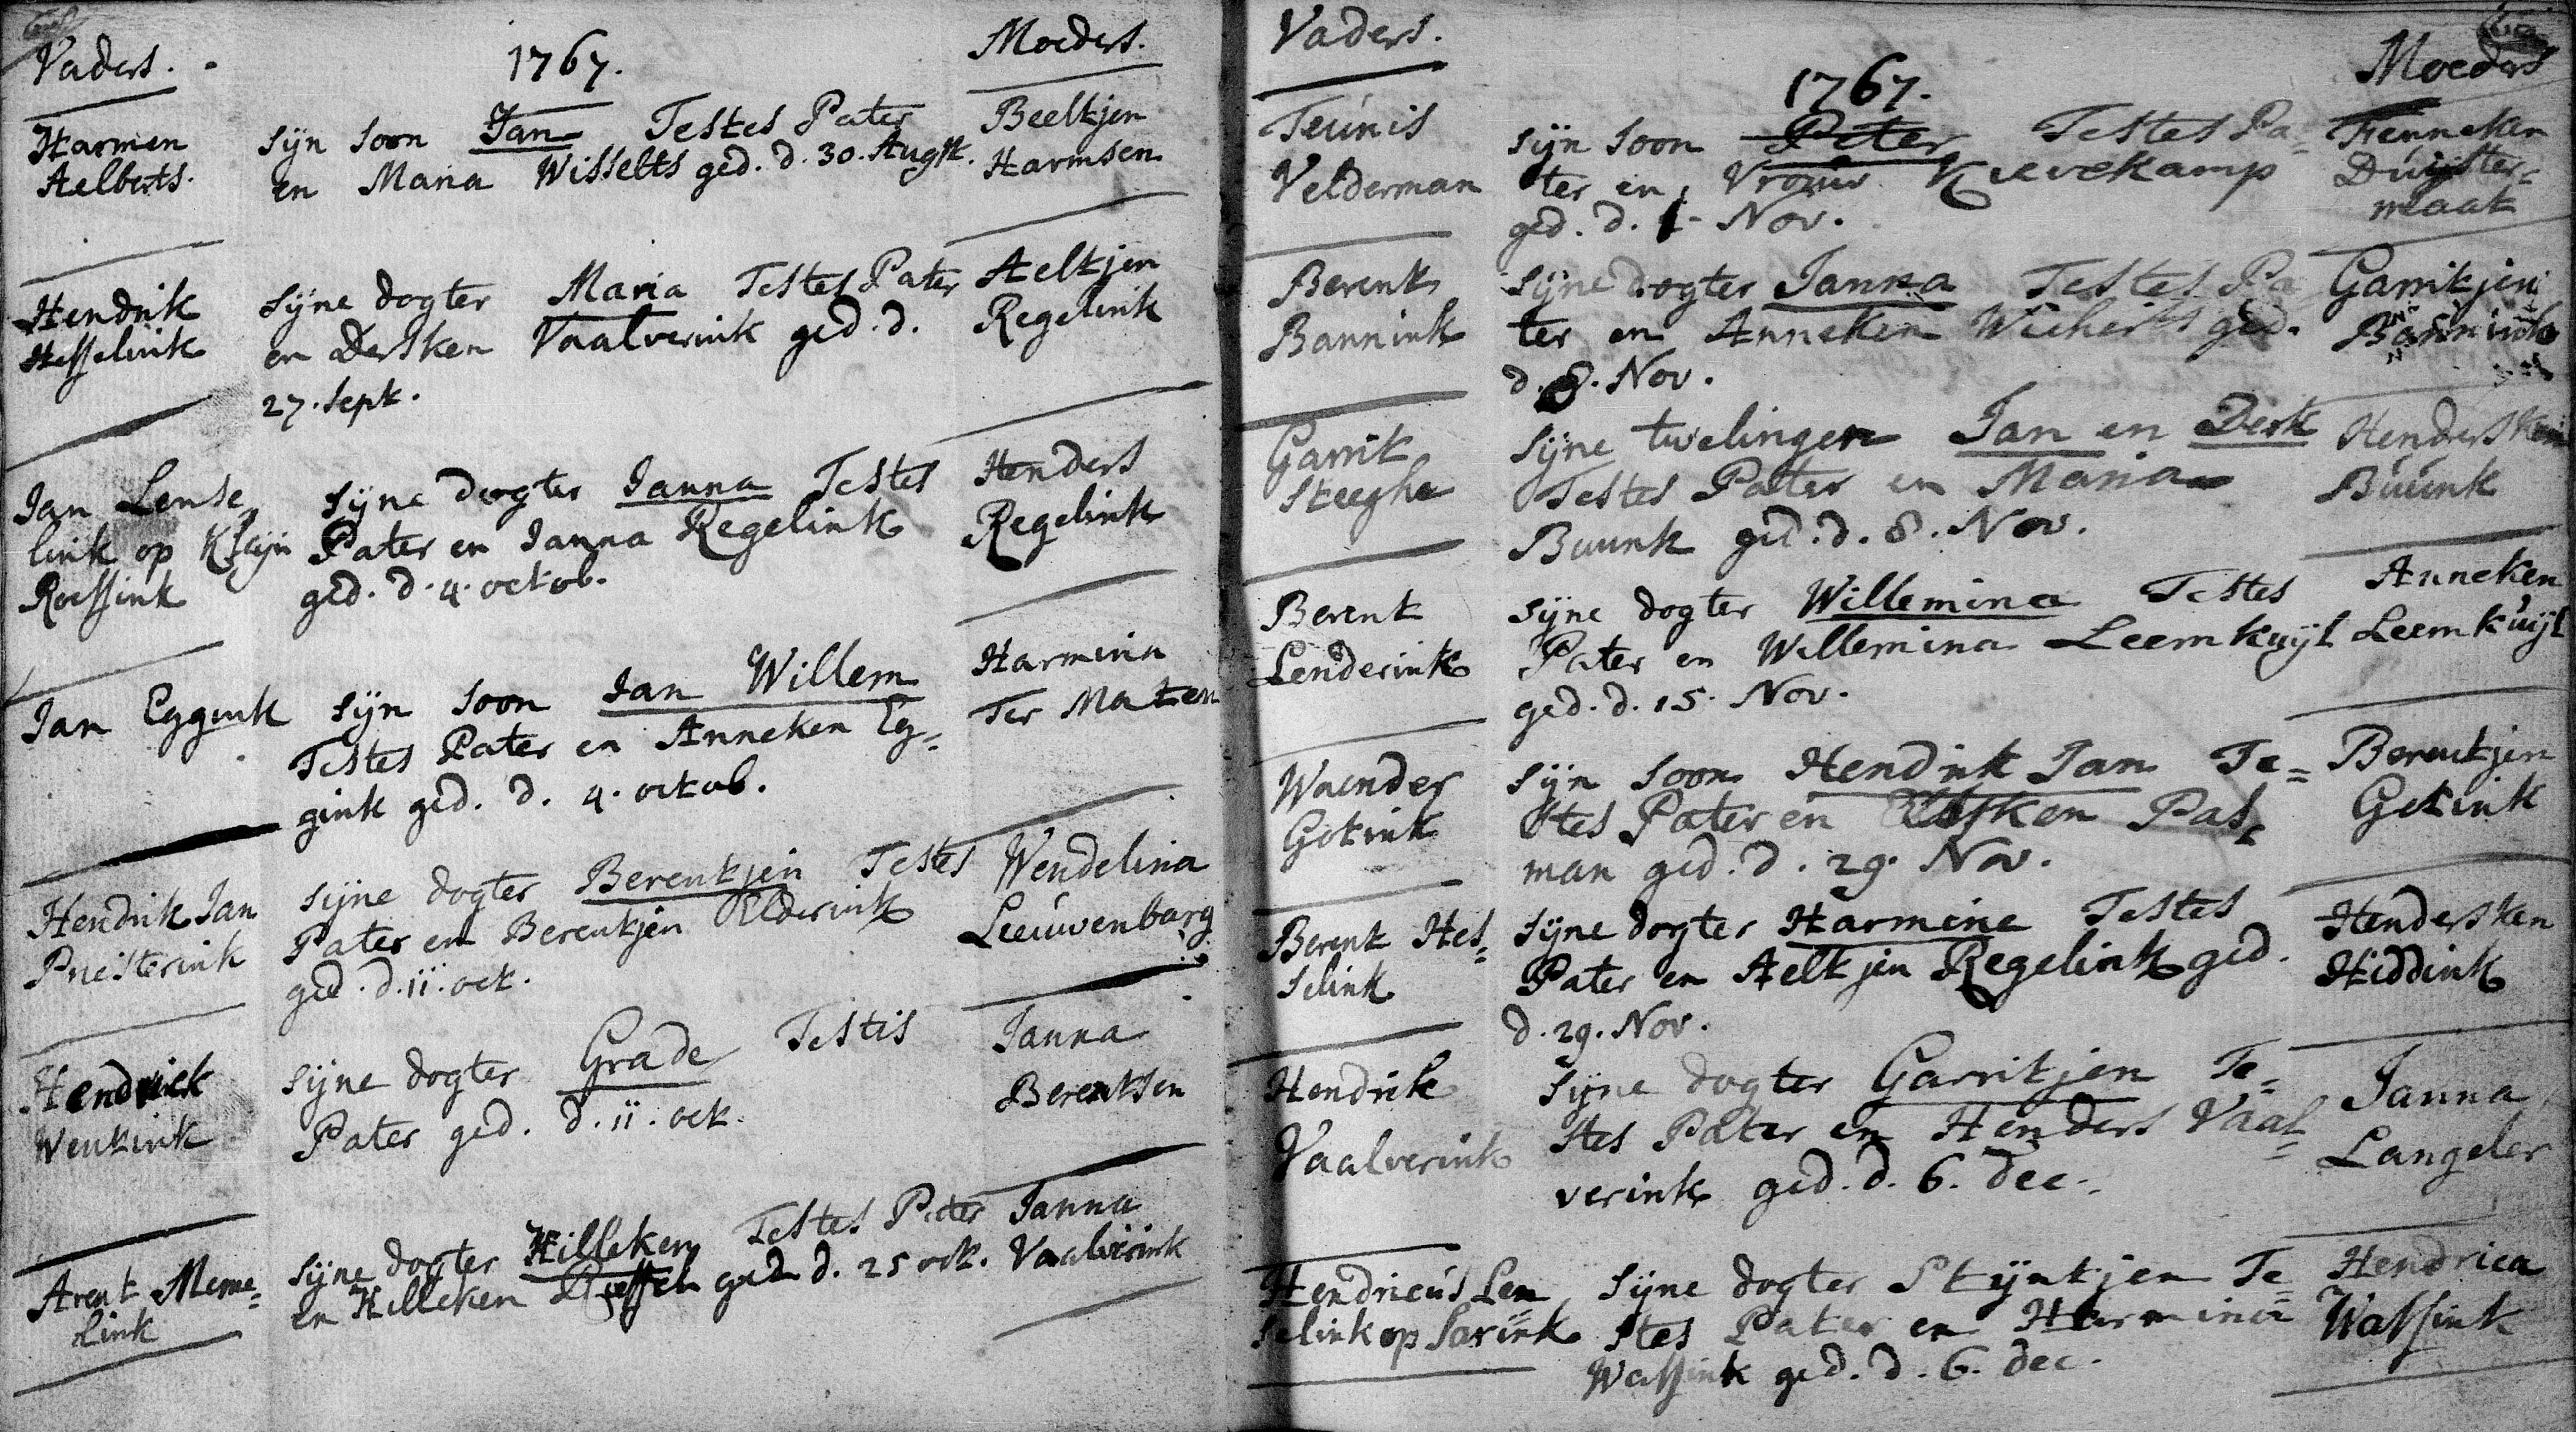 Vaders.
1767.
Moeders.
Harmen
Aelberts.
sijn soon Jan Testes Pater
en Maria Wisselts ged. d. 30. Augst.
Beeltjen
Harmsen
Hendrik
Hesselink
sijne dogter Maria Testes Pater
en Dersken Vaalverink ged. d.
27. sept.
Aeltjen
Regelink
Jan Lense
link op Kleijn
Roessink
sijne dogter Janna Testes
Pater en Janna Regelink
ged. d. 4. octob.
Henders
Regelink
Jan Eggink
sijn soon Jan Willem
Testes Pater en Anneken Eg=
gink ged. d. 4. octob.
Harmina
Ter Maten
Hendrik Jan
Priesterink
sijne dogter Berentjen Testes
Pater en Berentjen Elderink
ged. d. 11. oct.
Wendelina
Leeuwenbarg
Hendrick
Wentink
sijne dogter Grade Testis
Pater ged. d. 11. oct.
Janna
Berentsen
Arent Meme=
link
sijne dogter Hilleken Testes Pater
en Hilleken ged d. 25 oct.
Janna
Vaalverink
Vaders.
1767.
Moeders
Teunis
Velderman
sijn soon Peter Testes Pa=
ter en Vrouw Kievekamp
ged. d. 1 - Nov.
Fenneken
Duijster=
maat
Berent
Bannink
sijne dogter Janna Testes Pa
ter en Anneken Wicherts ged.
d. 8. Nov.
Garritjen
Bannink
Garrit
Steeghe
sijne twelingen Jan en Derk
Testes Pater en Maria
Buunk ged. d. 8. Nov.
Hendersken
Buunk
Berent
Lenderink
sijne dogter Willemina Testes
Pater en Willemina Leemkuijl
ged. d. 15. Nov.
Anneken
Leemkuijl
Waender
Gotink
sijn soon Hendrik Jan Te=
stes Pater en Elsken Pas=
man ged. d. 29. Nov.
Berentjen
Gotink
Berent Hes=
selink
sijne dogter Harmine Testes
Pater en Aeltjen Regelink ged.
d. 29. Nov.
Hendersken
Hiddink
Hendrik
Vaalverink
sijne dogter Garritjen Te=
stes Pater en Henders Vaal=
verink ged. d. 6. dec.
Janna
Langeler
Hendricus Len=
selink op Sarink
sijne dogter Stijntjen Te=
stes Pater en Harmina
Wassink ged. d. 6. dec.
Hendrica
Wassink